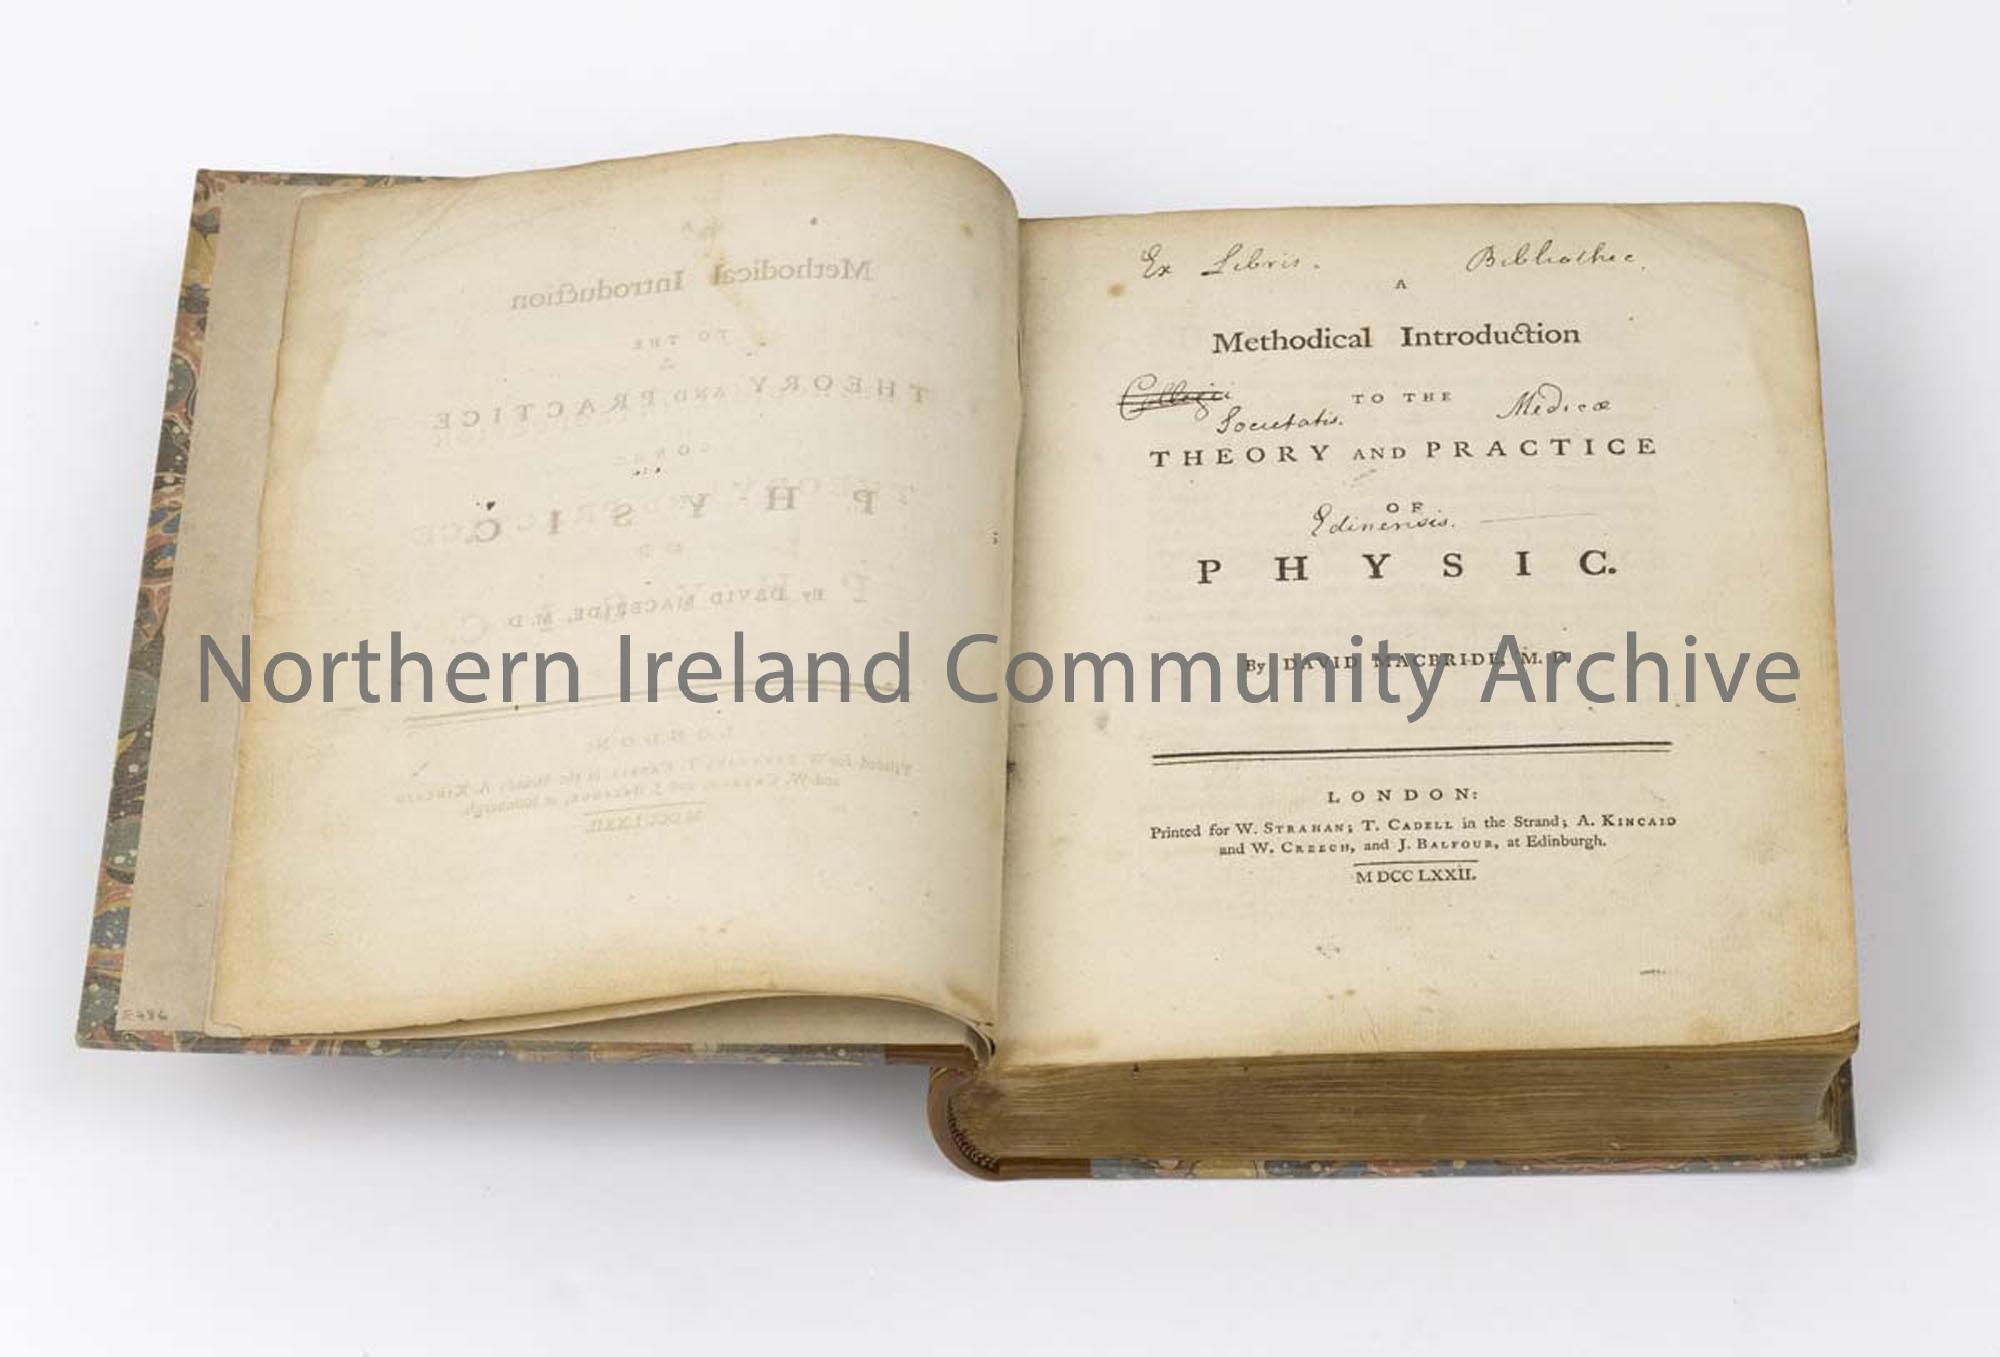 Ex Libris. Bibliothec.
A
Methodical Introduction
TO THE
Collegii Medicæ
Societatis.
THEORY AND PRACTICE
OF
Edinensis.
PHYSIC.
By DAVID MACBRIDE, M. D.
Northern Ireland Community Archive
LONDON:
Printed for W. STRAHAN; T. CADELL in the Strand; A. KINCAID
and W. CREECH, and J. BALFOUR, at Edinburgh.
M DCC LXXII.